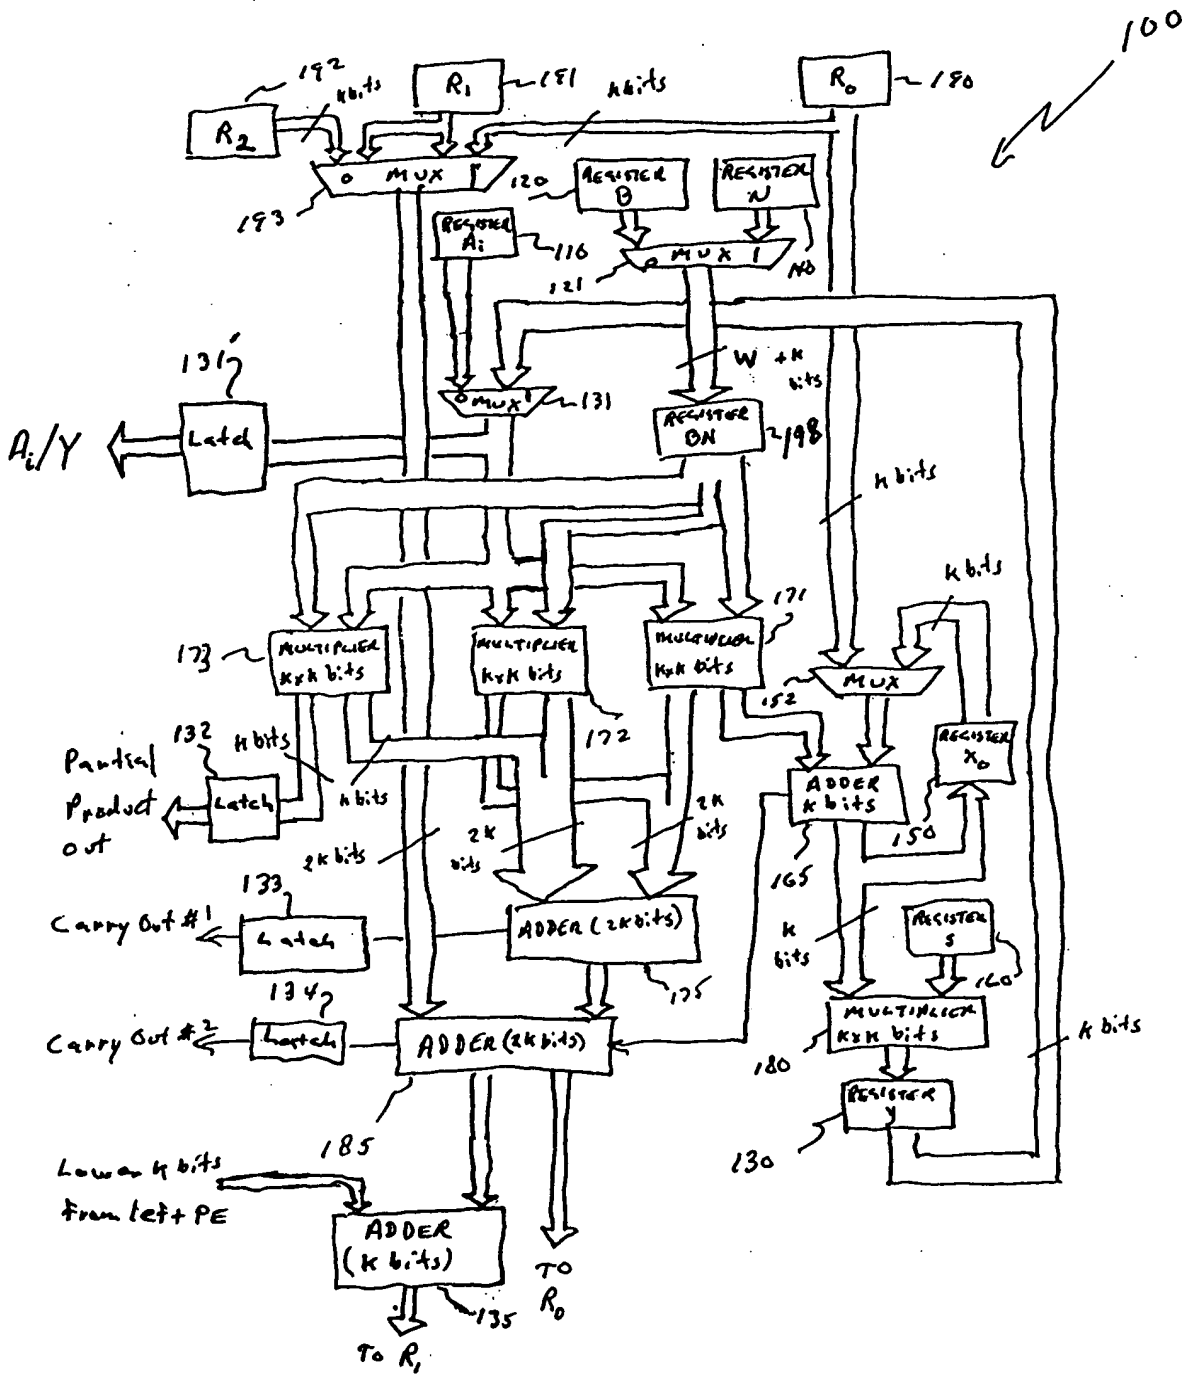 100
192
k bits
R1
191
k bits
R0
190
R2
0 MUX 1
193
120
REGISTER
B
REGISTER
N
REGISTER
Ai
110
0 MUX 1
121
140
131'
W + k
bits
0 MUX 1
131
REGISTER
BN
198
Ai/Y
Latch
k bits
k bits
171
173
MULTIPLIER
k x k bits
MULTIPLIER
k x k bits
MULTIPLIER
k x k bits
152
MUX
172
132
k bits
k bits
REGISTER
X0
Partial
Product
out
Latch
ADDER
k bits
150
2k bits
2k
bits
2k
bits
165
133
Carry Out #1
Latch
ADDER (2k bits)
k
bits
REGISTER
S
160
175
134
Carry Out #2
Latch
ADDER (2k bits)
MULTIPLIER
k x k bits
k bits
180
REGISTER
Y
130
185
Lower k bits
From left PE
ADDER
(k bits)
135
TO
R0
TO R1